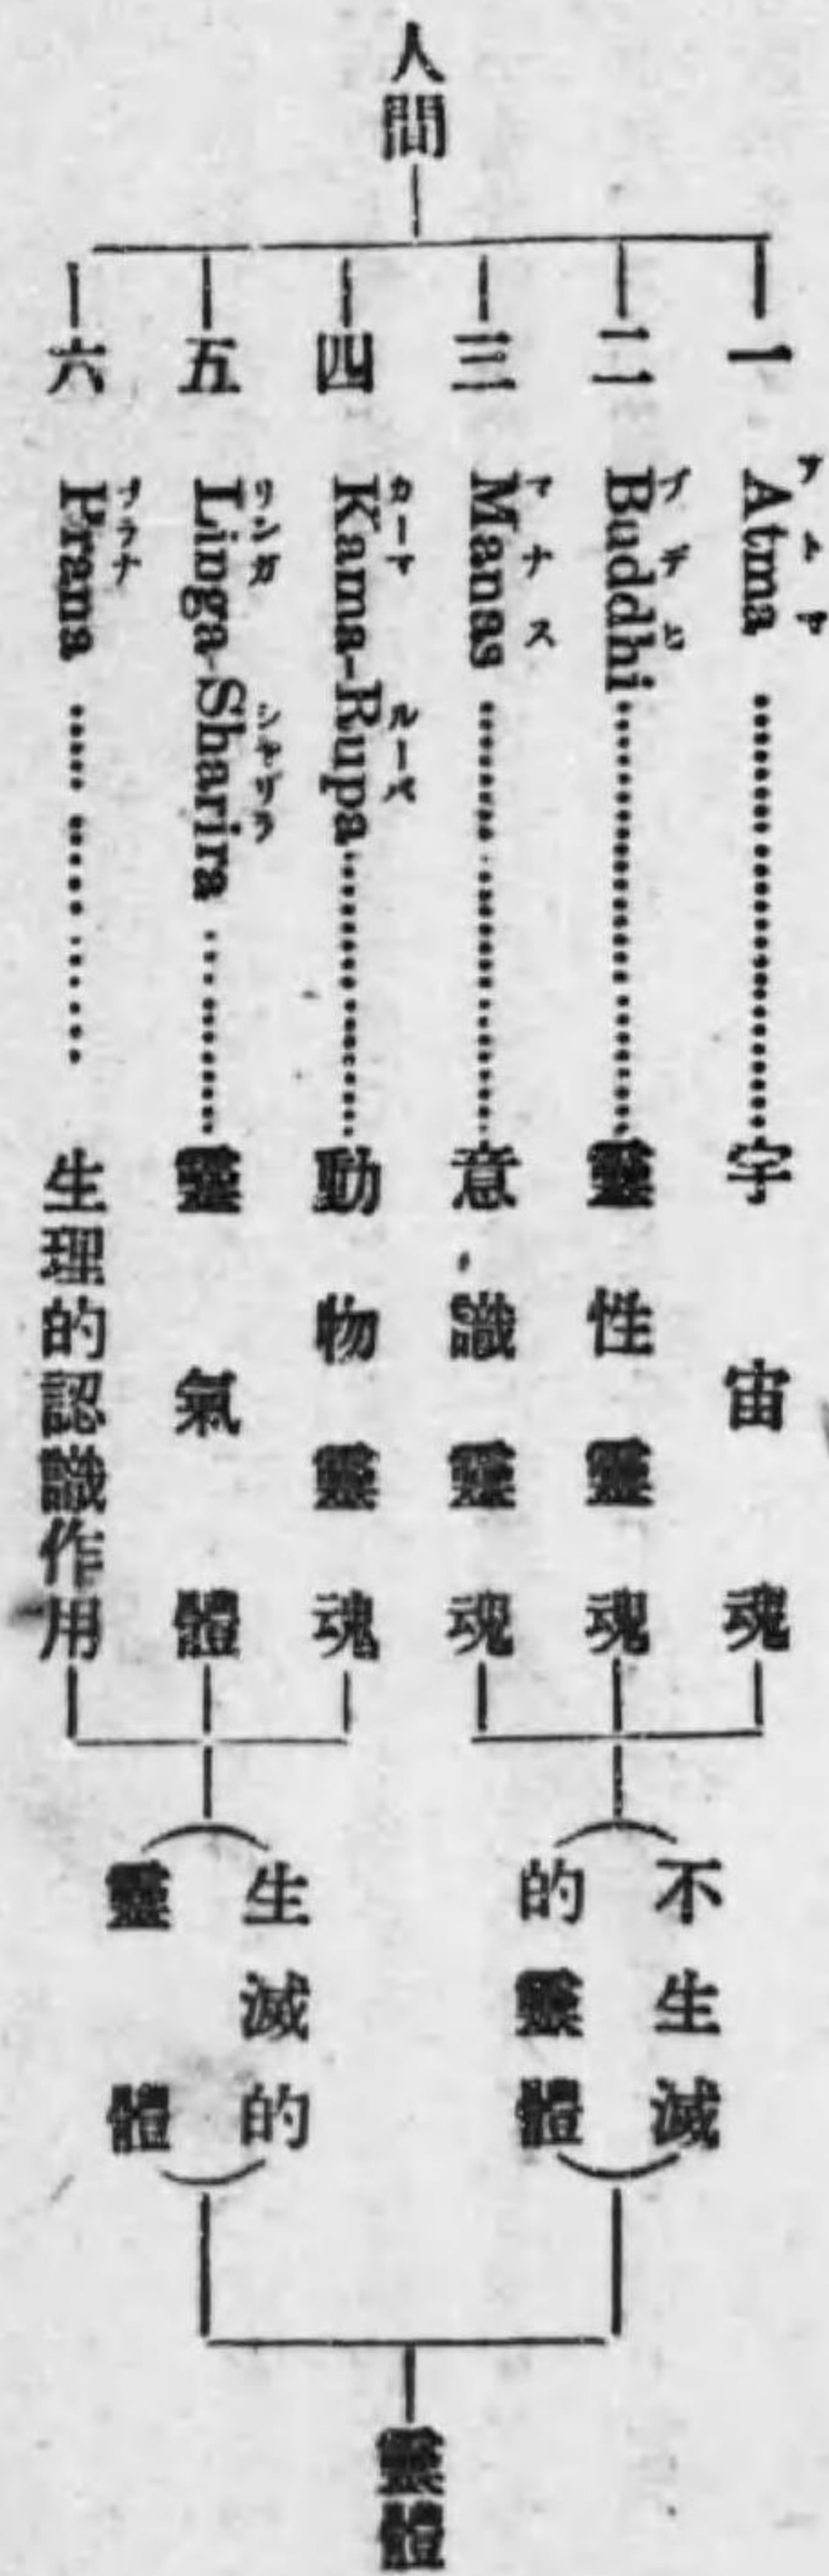 人間
一 Atma アトマ ………… 宇宙魂
二 Buddhi ブデヒ ………… 靈性靈魂
三 Manas マナス ………… 意識靈魂
四 Kama-Rupa カーマルーパ ………… 動物靈魂
五 Linga-Sharira リンガシャリラ ………… 靈氣體
六 Prana プラナ ………… 生理的認識作用
(不生滅
的靈體)
(生滅的
靈體)
靈體